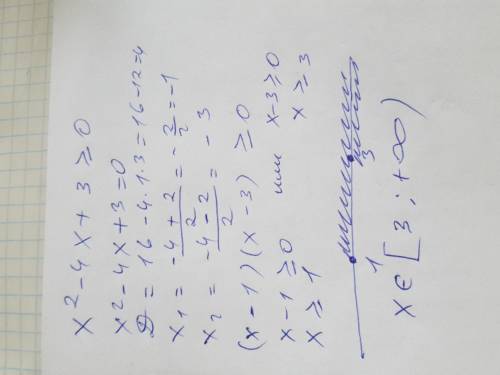 x² - 4x + 3 ≥ 0
x² - 4x + 3 = 0
D = 16 - 4·1·3 = 16 - 12 = 4
x₁ = (-4 + 2)/2 = -2/2 = -1
x₂ = (-4 - 2)/2 = -3
(x - 1)(x - 3) ≥ 0
x - 1 ≥ 0 или x - 3 ≥ 0
x ≥ 1 x ≥ 3
1 3
x ∈ [3 ; +∞)